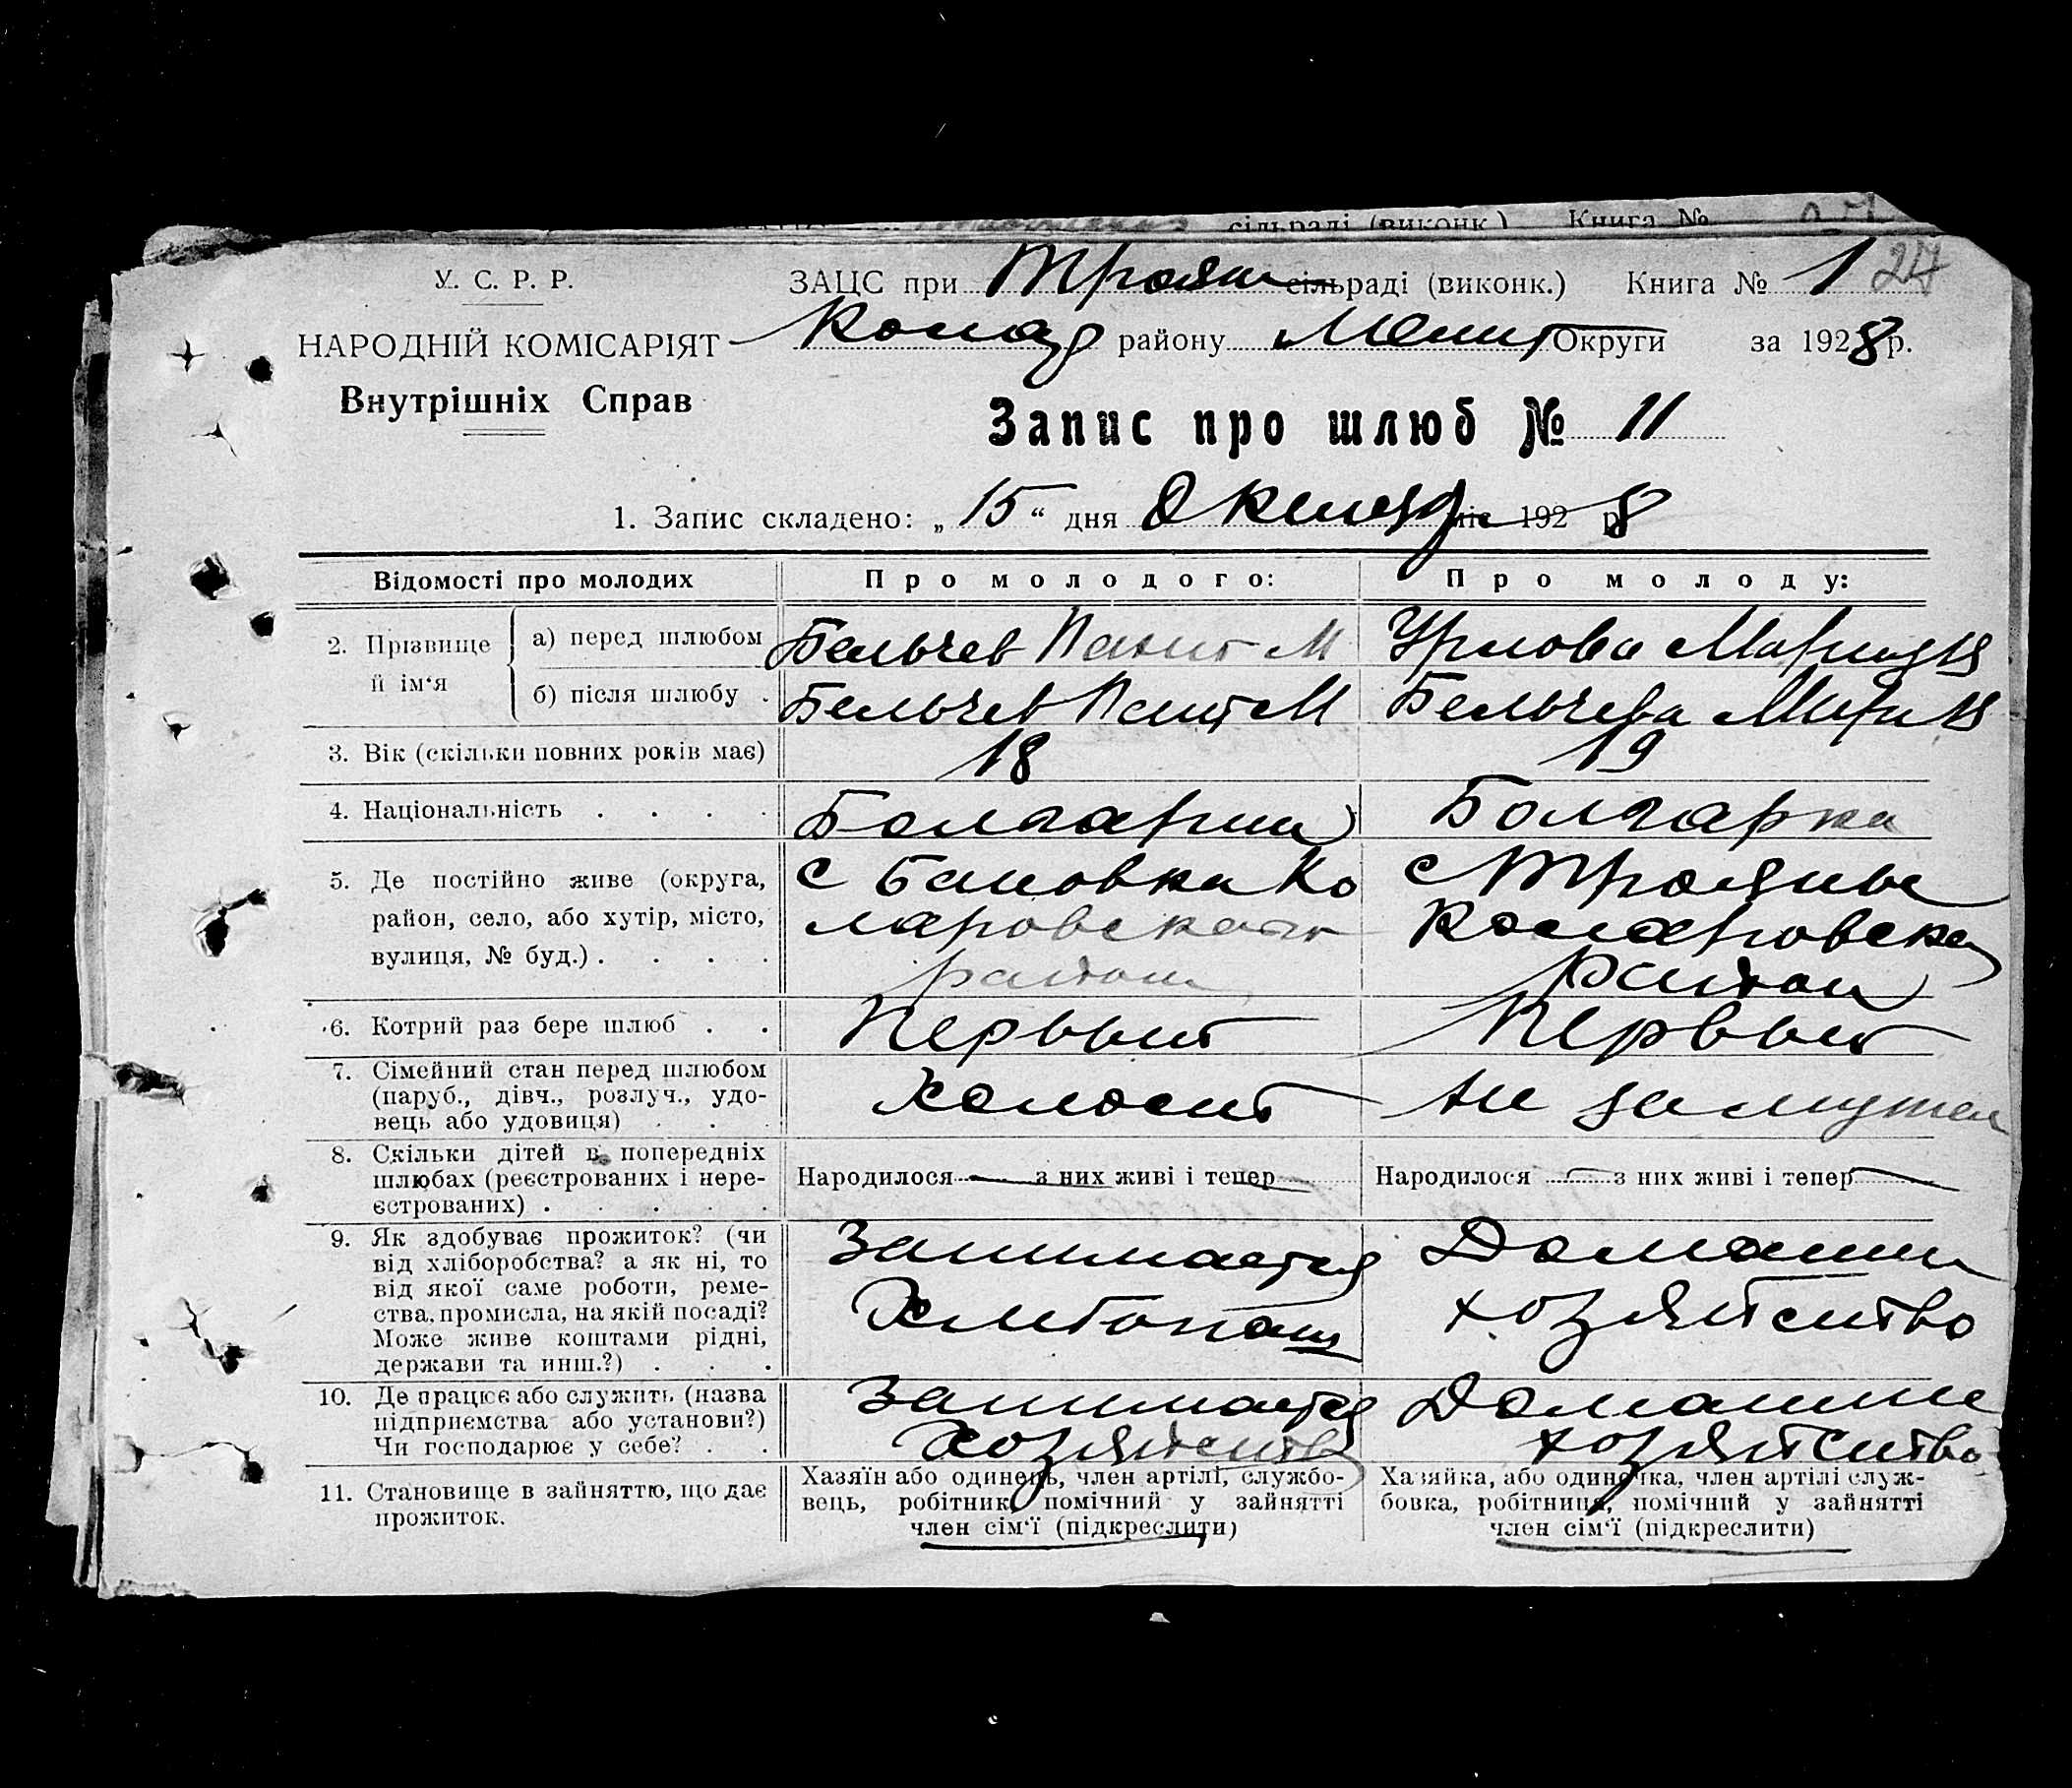 сільраді (виконк.) Книга №
У. С. Р. Р.
ЗАЦС при Троян сільраді (виконк.) Книга № 1 27
НАРОДНІЙ КОМІСАРІЯТ
Колар району Мелит Округи за 1928 р.
Внутрішніх Справ
Запис про шлюб № 11
1. Запис складено: „ 15 “ дня Октяб міс 192 8 р
Відомості про молодих
Про молодого:
Про молоду:
2. Прізвище й ім‘я
а) перед шлюбом
Бельчев М
Урлова
б) після шлюбу .
Бельчев М
Бельчева
3. Вік (скільки повних років має)
18
19
4. Національність . . . .
Болгарин
Болгарка
5. Де постійно живе (округа,
район, село, або хутір, місто,
вулиця, № буд.) . . . .
С Бановка Ко
ларовского
район
С Трояны
Коларовска
район
6. Котрий раз бере шлюб . .
Первый
Первый
7. Сімейний стан перед шлюбом
(паруб., дівч., розлуч., удо-
вець або удовиця) . . .
Холост
Не замужем
8. Скільки дітей в попередніх
шлюбах (реєстрованих і нере-
єстрованих) . . . . .
Народилося — з них живі і тепер —
Народилося — з них живі і тепер —
9. Як здобуває прожиток? (чи
від хліборобства? а як ні, то
від якої саме роботи, реме-
ства, промисла, на якій посаді?
Може живе коштами рідні,
держави та инш.?) . . .
Занимается
Хлебопаш
Домашни
хозяйство
10. Де працює або служить (назва
підприємства або установи?)
Чи господарює у себе? . .
Занимается
Хозяйств
Домашние
хозяйство
11. Становище в зайняттю, що дає
прожиток.
Хазяїн або одинець, член артілі, службо-
вець, робітник, помічний у зайнятті
член сім‘ї (підкреслити)
Хазяйка, або одиночка, член артілі служ-
бовка, робітниця, помічний у зайнятті
член сім‘ї (підкреслити)